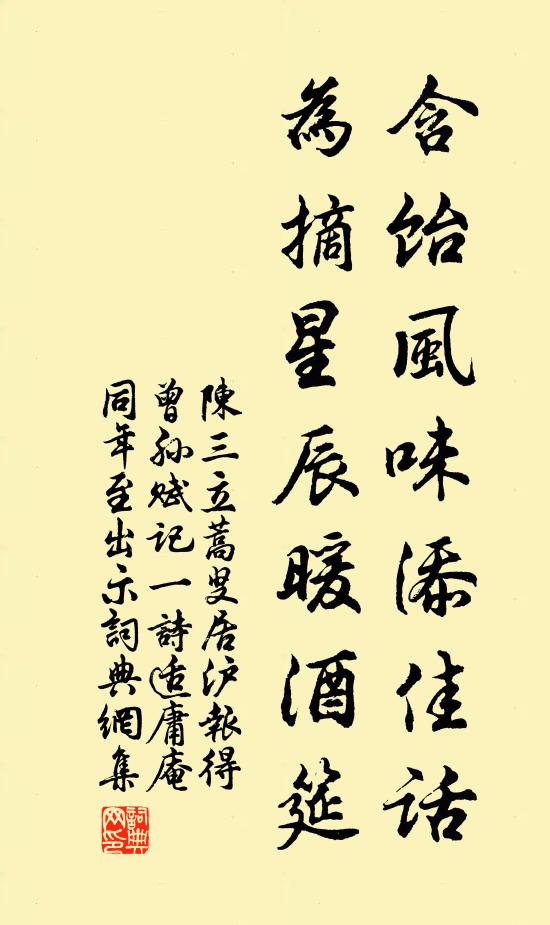 含飴風味添佳話
為摘星辰暖酒筵
陳三立蒿叟居沪報得
曾孙賦記一詩适庸庵
同年至出示詞典網集
詞典網印